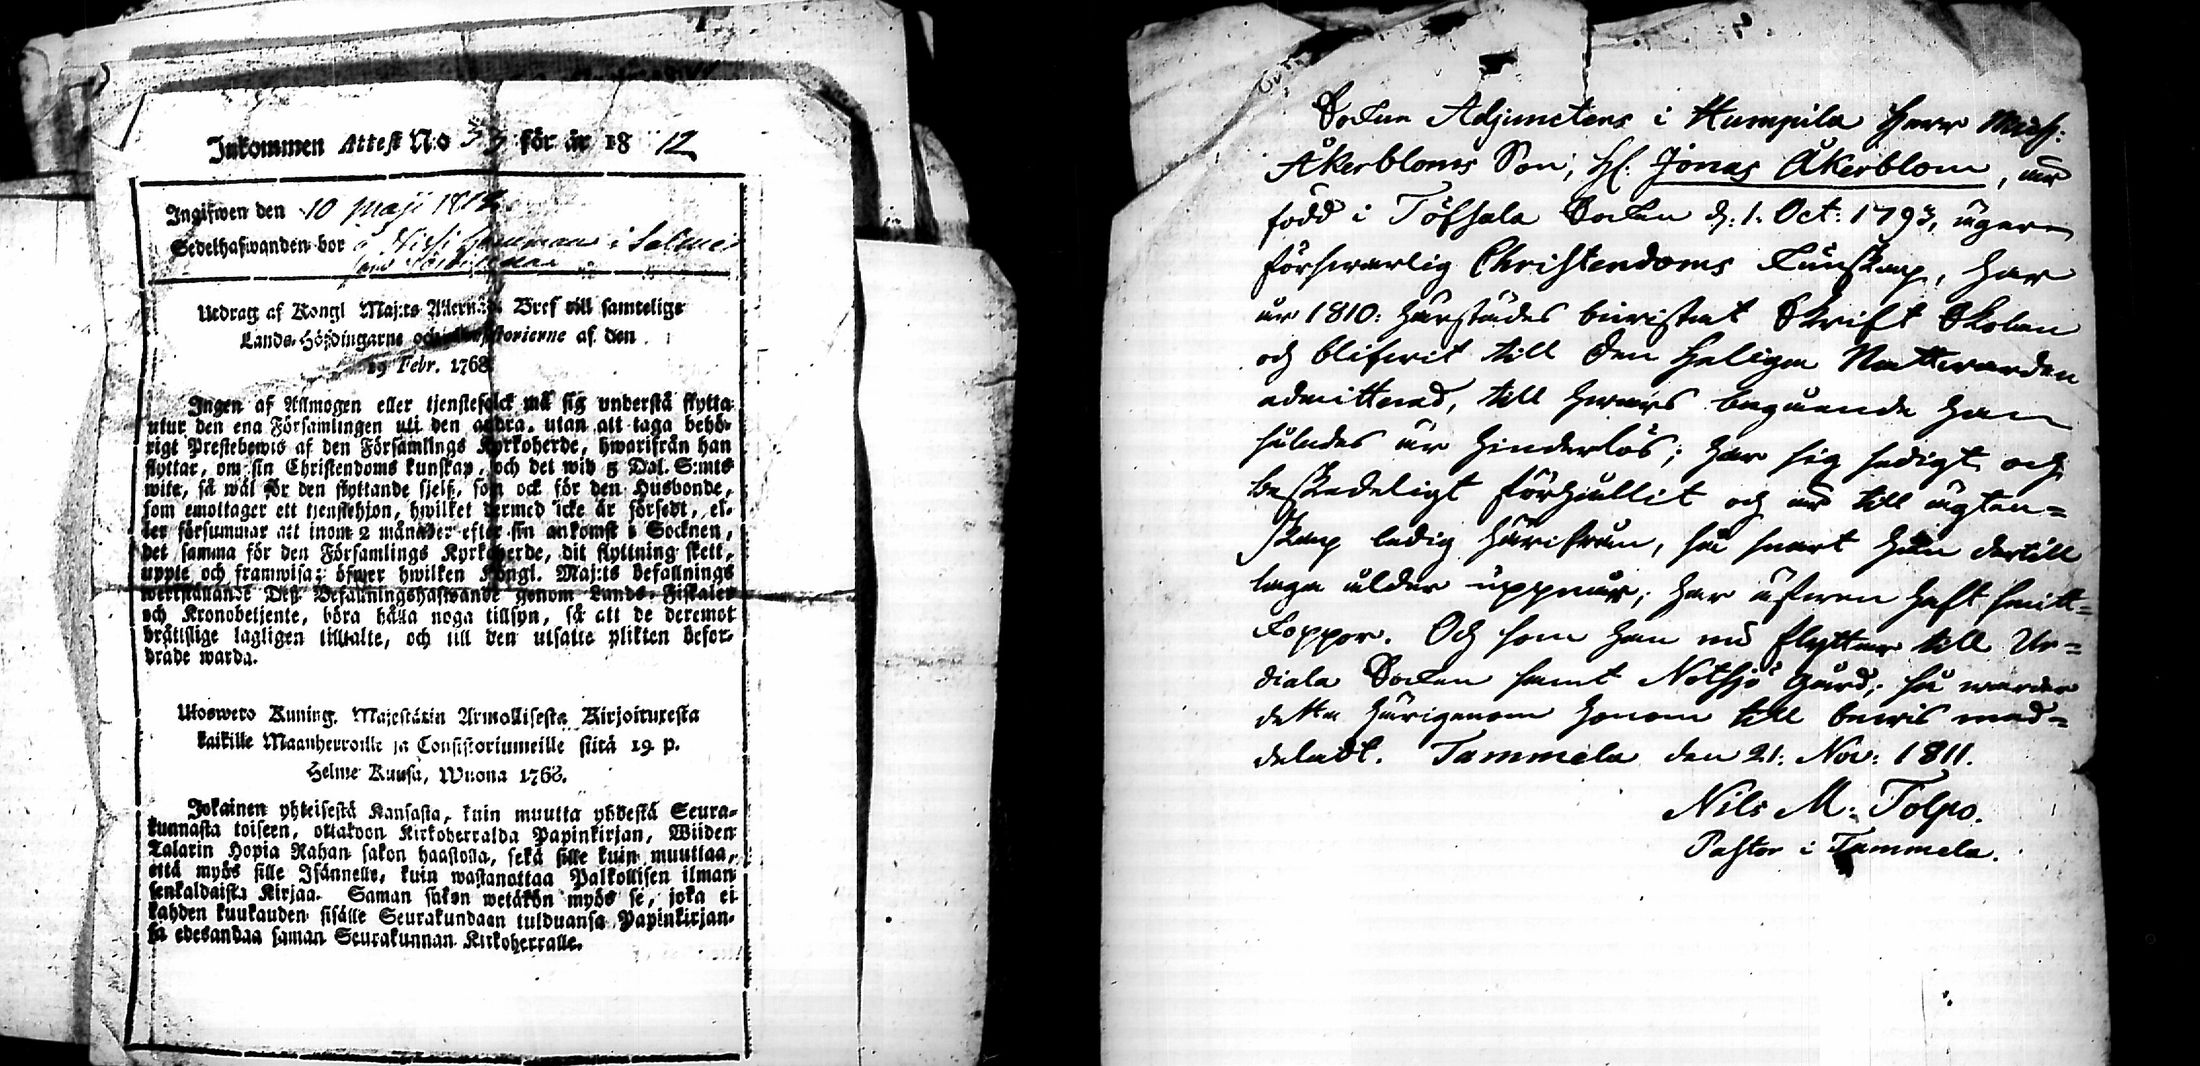 Inkommen Attest No 33 för år 1812
Ingifwen den 10 Maji 1812
Sedelhafwanden bor i Salmei
Utdrag af Kongl Maj:ts Allernåd. Bref till samtelige
Lands-Höfdingarne och Consistorierne af den
19 Febr. 1768.
Ingen af Allmogen eller tjenstefolck må sig understå flytta
utur den ena Församlingen uti den andra, utan att taga behö-
rigt Prestebewis af den Församlings Kyrkoherde, hwarifrån han
flyttar, om sin Christendoms kunskap, och det wid 5 Dal. S:mts
wite, så wäl för den flyttande sjelf, som ock för den Husbonde,
som emottager ett tjenstehjon, hwilket dermed icke är försedt, el-
ler försummar att inom 2 månader efter sin ankomst i Socknen,
det samma för den Församlings Kyrkoherde, dit flyttning skett,
uppte och framwisa; öfwer hwilken Kongl. Maj:ts befallnings
werkställande Dess Befallningshafwande genom Lands-Fiskaler
och Kronobetjente, böra hålla noga tillsyn, så att de deremot
bråttslige lagligen tilltalte, och till den utsatte plikten befor-
drade warda.
Uloswero Kuning. Majestätin Armollisesta Kirjoituxesta
kaikille Maanherroille ja Consistoriumeille siitä 19 p.
Helme Kuusa, Wuona 1768.
Jokainen yhteisestä Kansasta, kuin muutta yhdestä Seura-
kunnasta toiseen, ottakoon Kirkoherralda Papinkirjan, Wiiden
Talarin Hopia Rahan sakon haastolla, sekä sille kuin muuttaa,
että myös sille Isännelle, kuin wastanottaa Palkollisen ilman
senkaldaista Kirjaa. Saman sakon wetäkön myös se, joka ei
kahden kuukauden sisälle Seurakundaan tulduansa Papinkirjan-
sa edesandaa saman Seurakunnan Kirkoherralle.
Socken Adjunctens i Humpila Herr Mich:
Åkerbloms Son, H. Jonas Åkerblom, är
född i Töfsala Socken d: 1. Oct: 1793, äger en
förswarlig Christendoms Kunskap, har
år 1810: härstädes biwistat Skrift Skolan
och blifwit till den Heliga Nattwarden
admitterad, till hwars begående han
således är hinderlös; har sig sedigt och
beskedeligt förhållit och är till ägten-
skap ledig härifrån, så snart han dertill
laga ålder uppnår; har äfwen haft smitt-
koppor. Och som han nu flyttar till Ur-
diala Socken samt Notsjö Gård; så warder
detta härigenom honom till bewis med-
deladt. Tammela den 21. Nov: 1811.
Nils M: Tolpo.
Pastor i Tammela.